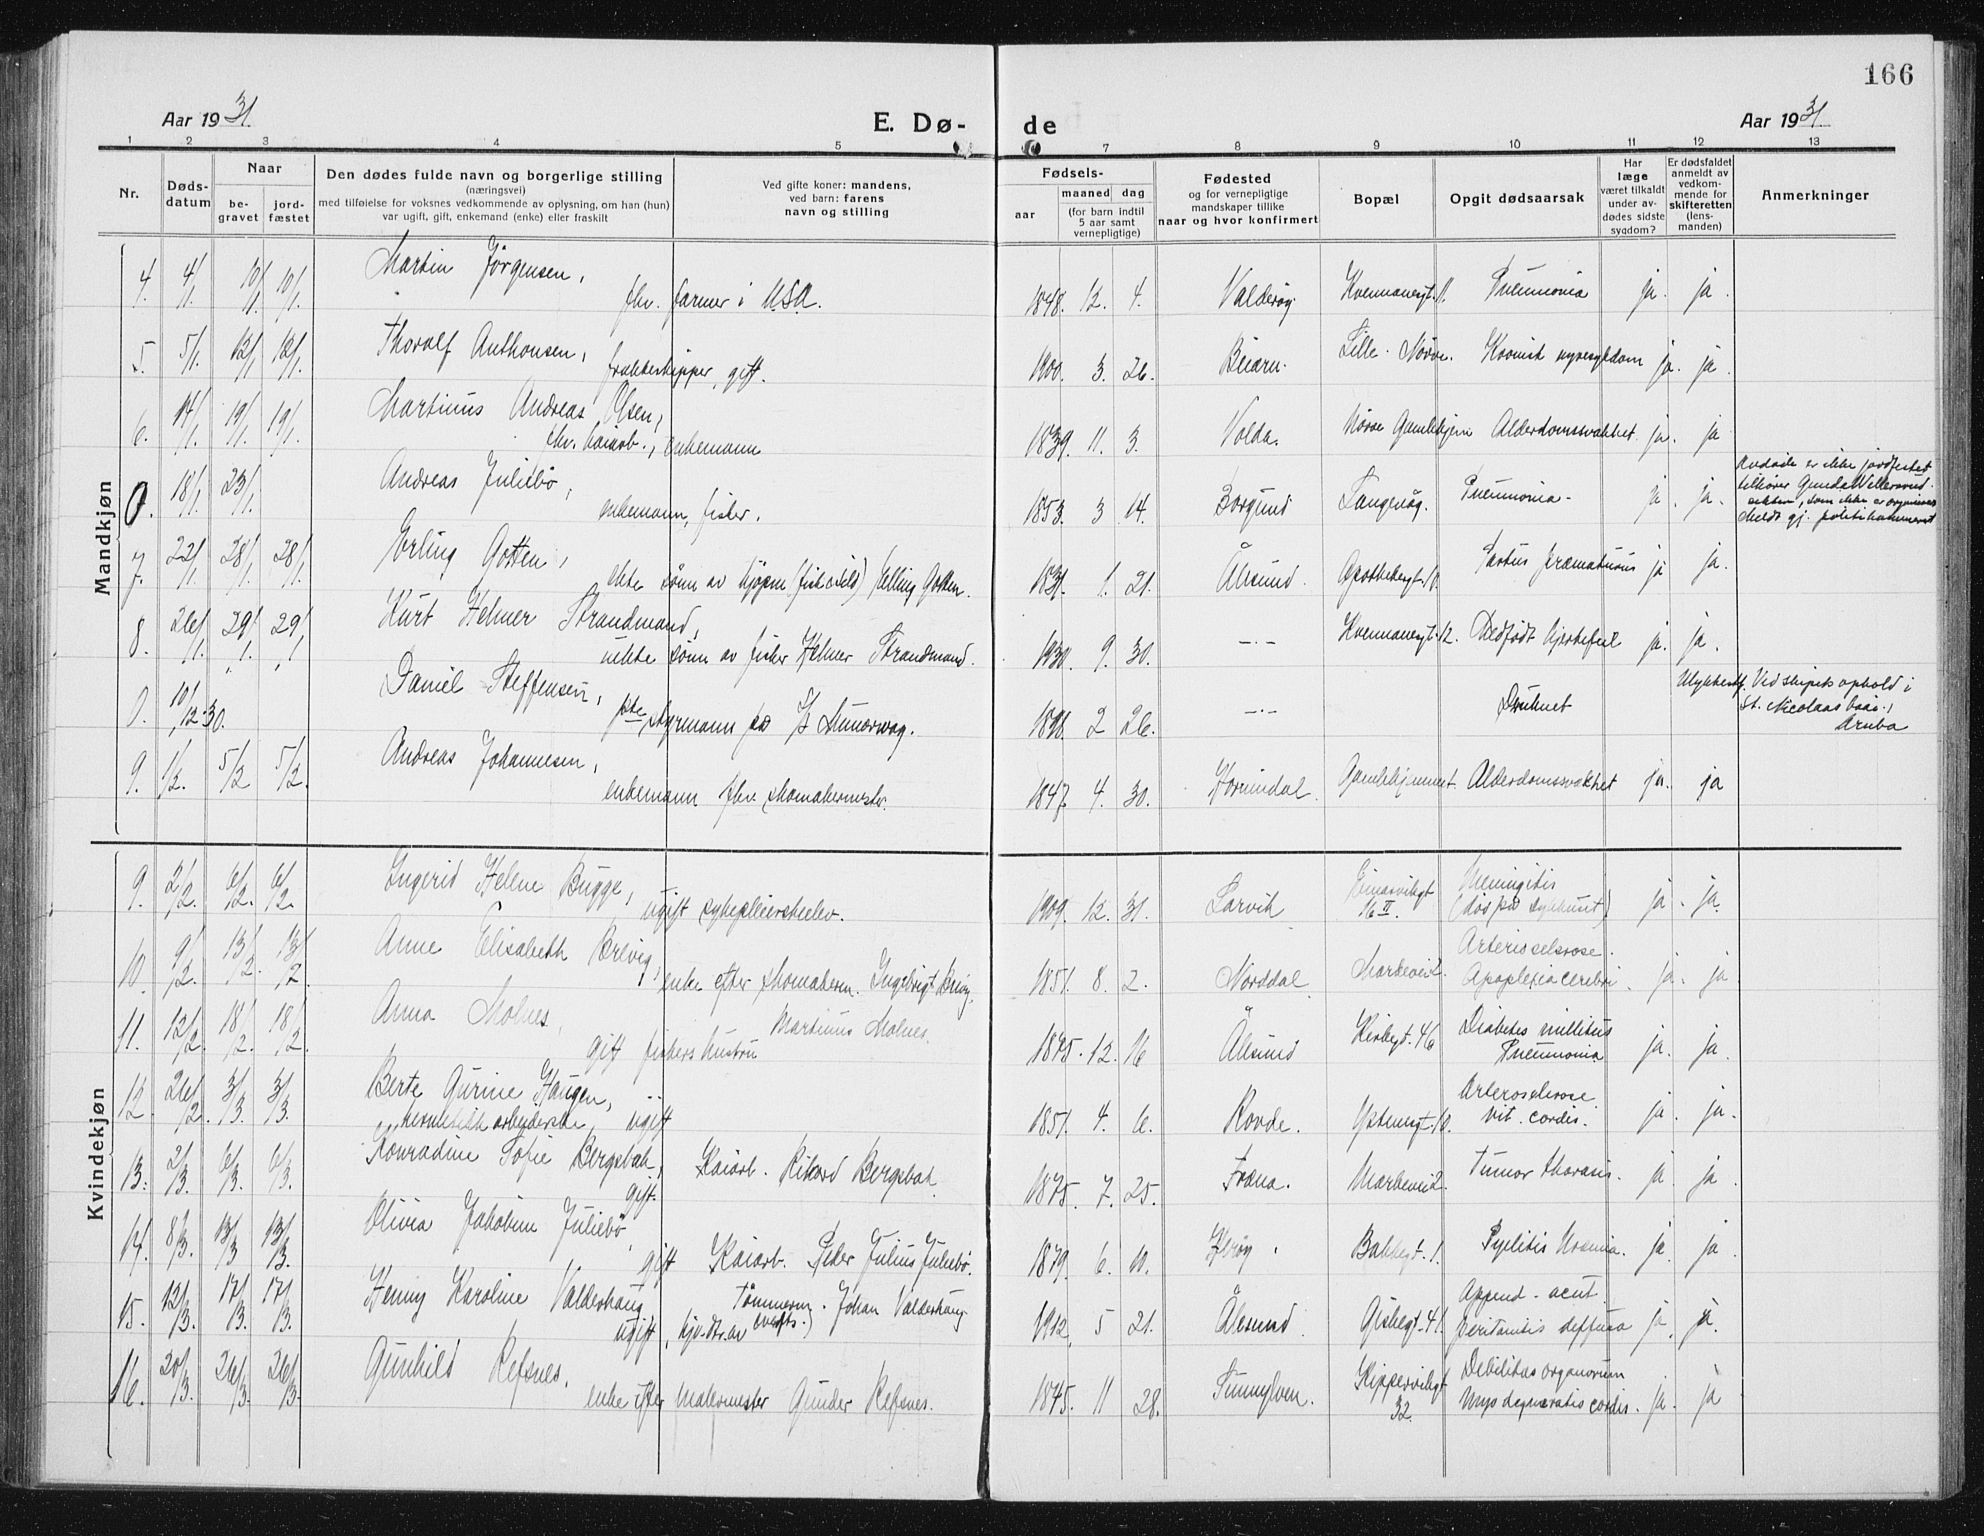 166
Aar 1931.
E. Dø-
de
Aar 1931.
1 2 3 4 5 7 8 9 10 11 12 13
Nr.
Døds-
datum
Naar
be-
gravet
jord-
fæstet
Den dødes fulde navn og borgerlige stilling
(næringsvei)
med tilføielse for voksnes vedkommende av oplysning, om han (hun)
var ugift, gift, enkemand (enke) eller fraskilt
Ved gifte koner: mandens,
ved barn: farens
navn og stilling
Fødsels-
aar
maaned dag
(for barn indtil
5 aar samt
vernepligtige)
Fødested
og for vernepligtige
mandskaper tillike
naar og hvor konfirmert
Bopæl
Opgit dødsaarsak
Har
læge
været tilkaldt
under av-
dødes sidste
sygdom?
Er dødsfaldet
anmeldt av
vedkom-
mende for
skifteretten
(lens-
manden)
Anmerkninger
Mandkjøn
4. 4/1. 10/1 10/1. Martin Jörgensen,
fhv. farmer i USA. 1848. 12. 4. Valderøy. Kvennavegt. 11. Pneumonia ja. ja.
5. 5/1. 12/1 12/1. Thoralf Anthonsen,
frakteskipper, gift. 1900. 3. 26. Beiarn. Lille-Nörve. Kronisk nyresykdom ja. ja.
6. 14/1. 19/1. 19/1. Martinus Andreas Olsen,
fhv. kaiarb., enkemann 1839. 11. 3. Volda. Nörve Gamlehjem Alderdomssvakhet. ja. ja
0. 18/1. 23/1. Andreas Juliebö,
enkemann, fisker. 1853. 3 14. Borgund Langevåg. Pneumonia. ja. ja.
Avdøde er ikke jordfestet
tilhører Gunda
sekten, som ikke er
Meldt gj. politikammeret
7. 22/1. 28/1. 28/1. Erling Gotten,
ekte sönn av kjöpm (fiskehdl) Elling Gotten. 1931. 1. 21. Ålesund. Apothekergt. 10. Partus præmaturus ja ja.
8. 26/1. 29/1. 29/1 Kurt Helmer Strandmand,
uekte sönn av fisker Helmer Strandmand. 1930. 9. 30. -.- Kvennavegt. 12. Medfödt hjertefeil ja. ja.
0. 10/12-30. Daniel Steffensen,
1ste styrmann på S/S Munorway. 1898. 2 26. -.- Druknet Ulykkestilf. Ved skipets ophold i
St. Nicolaas baai,
Aruba
9. 1/2. 5/2 5/2. Andreas Johannesen,
enkemann fhv. skomakermester. 1847. 4. 30. Hornindal. Gamlehjemmet. Alderdomssvakhet ja. ja
Kvindekjøn
9. 2/2. 6/2. 6/2. Ingerid Helene Bugge,
ugift sykepleierskeelev. 1909. 12. 31. Larvik
16 II. Meningitis
(död på sykehuset) ja. ja.
10. 9/2. 13/2. 13/2. Anne Elisabeth Brevig,
enke efter skomakerm. Ingebrigt Brevig. 1851. 8. 2. Norddal Markevei 2. Arteriosclerose.
Apoplexia cerebri. ja. ja
11. 12/2. 18/2. 18/2. Anna Molnes,
gift fiskers hustru Martinus Molnes. 1875. 12. 16 Ålesund Kirkegt. 46 Diabetes millitus
Pneumonia ja. ja.
12. 26/2. 3/3. 3/3. Berte Gurine Haugen,
hermetikkarbeiderske, ugift 1851. 4. 6. Rovde. Ystenesgt. 10. Arteriosclerose
vit. cordis. ja. ja.
13. 2/3. 6/3. 6/3. Konradine Sofie Bergsbak,
gift. Kaiarb. Rikard Bergsbak. 1875. 7. 25. Fræna. Markevei 2. Tumor thoracis. ja. ja.
14. 8/3. 13/3 13/3. Olivia Jakobine Juliebö,
gift Kaiarb. Peder Julius Juliebö. 1879. 6. 10. Herøy. Bakkegt. 1. Pyelitis Uremia. ja. ja.
15. 12/3. 17/3. 17/3. Henny Karoline Valderhaug
ugift, hjv. dtr. av Tömmerm. Johan Valderhaug 1912. 5 21. Ålesund. Gisbegt. 41. Append. acut.
peritonitis deffusa ja. ja.
16. 20/3. 26/3. 26/3. Gunhild Refsnes,
enke efter malermester Gunder Refsnes. 1845. 11 28. Sunnylven. Skippervikgt
32. Debilitas organorum
Myo degeneratio cordis. ja. ja